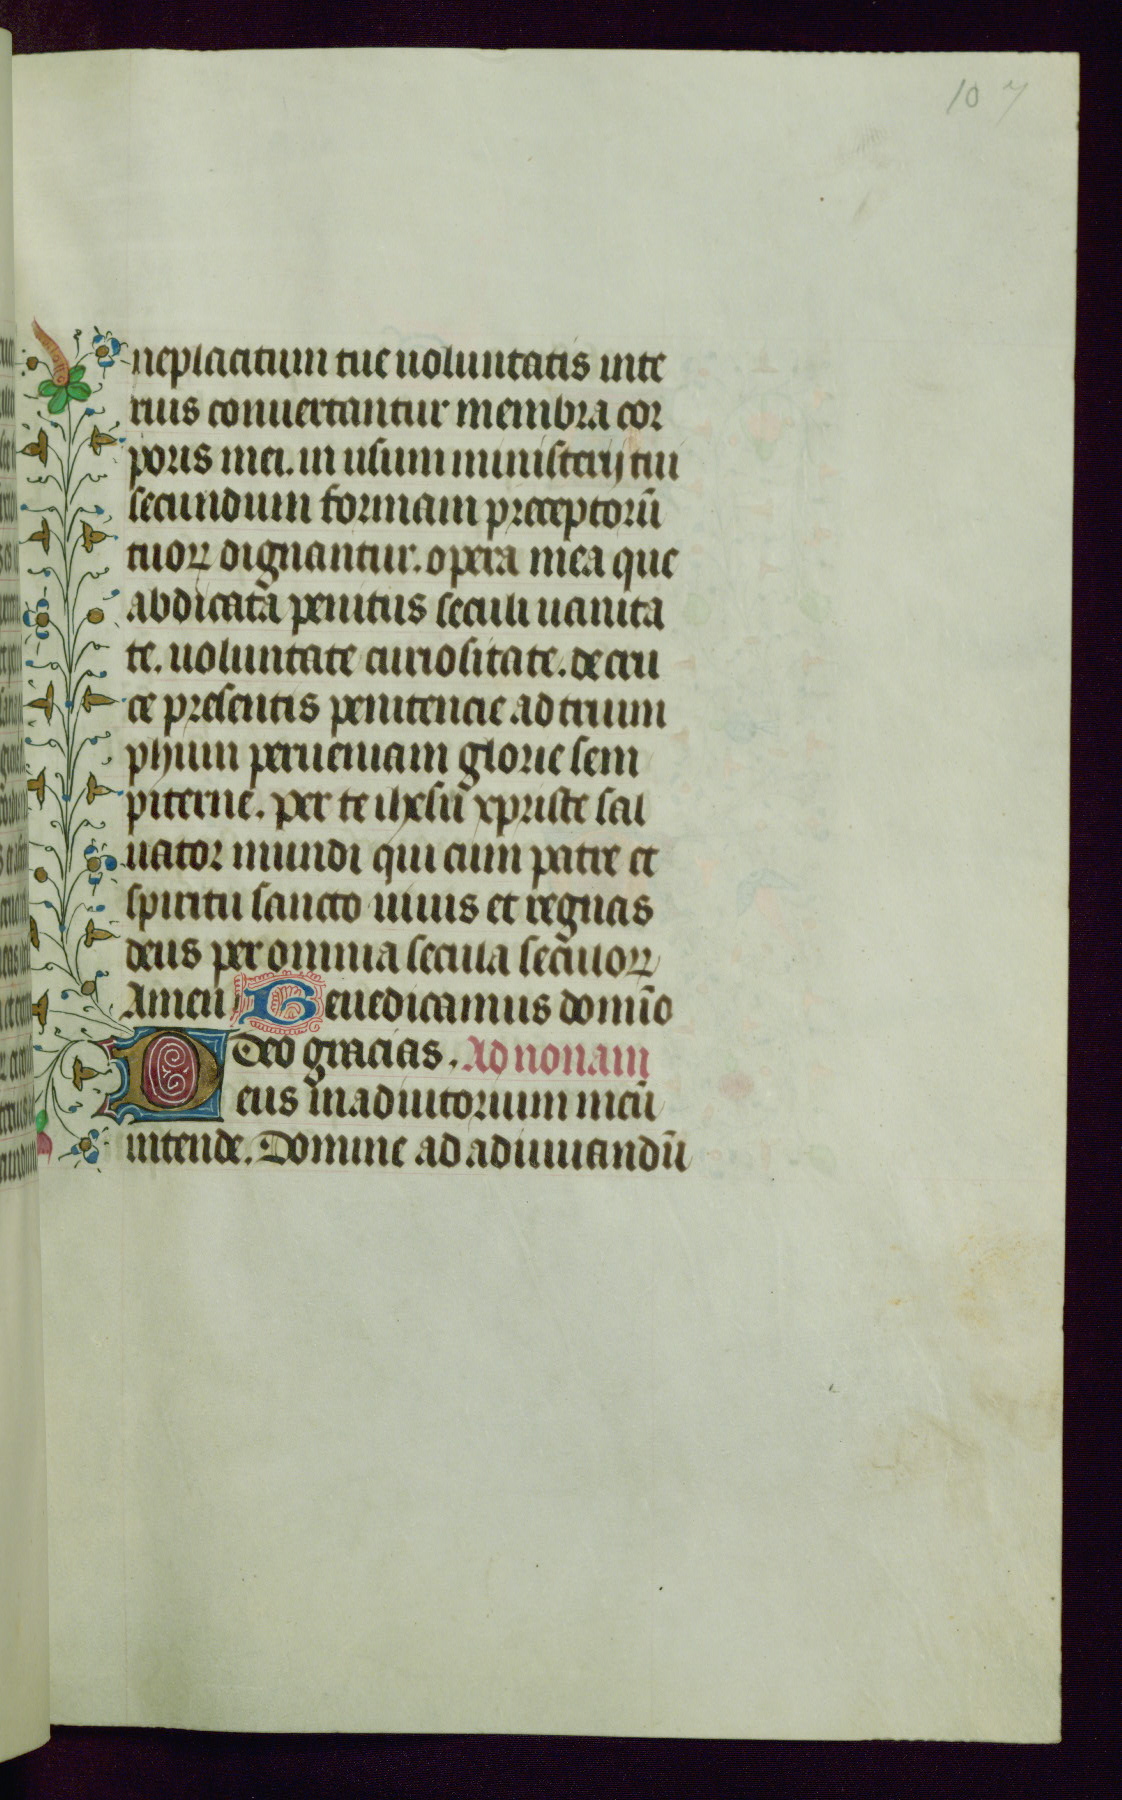 107
neplacitum tue uoluntatis inte
rius conuertantur membra cor
poris mei. in usum ministerij tui
secundum formam preceptorū
tuoꝝ dignantur. opera mea que
abdicatā penitus seculi uanita
te. uoluntate curiositate. de cru
ce presentis penitencie ad trium
phum perueniam glorie sem
piterne. per te ihesū xpriste sal
uator mundi qui cum patre et
spiritu sancto uiuis et regnas
deus per omnia secula seculoꝝ
Amen Benedicamus domīo
Deo gracias. Ad nonam
Deus in adiutorium meū
intende. Domine ad adiuuandū